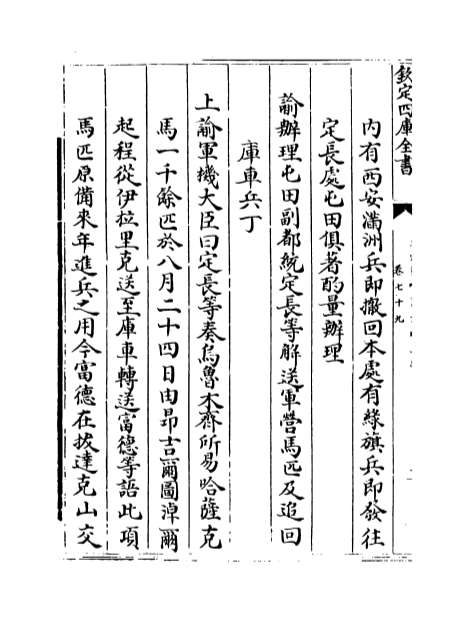 欽定四庫全書
卷七十九
内有西安滿洲兵即撤回本處有緑旗兵即發往
定長處屯田俱著酌量辦理
諭辦理屯田副都統定長等解送軍營馬匹及追回
庫車兵丁
上諭軍機大臣曰定長等奏烏魯木齊所易哈薩克
馬一千餘匹於八月二十四日由昂吉爾圖淖爾
起程從伊拉里克送至庫車轉送富德等語此項
馬匹原備來年進兵之用今富德在拔達克山交